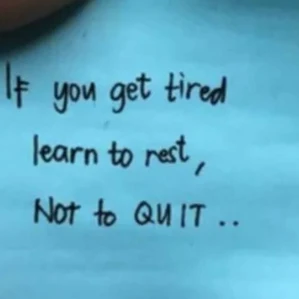 If you get tired
learn to rest,
Not to QUIT ..